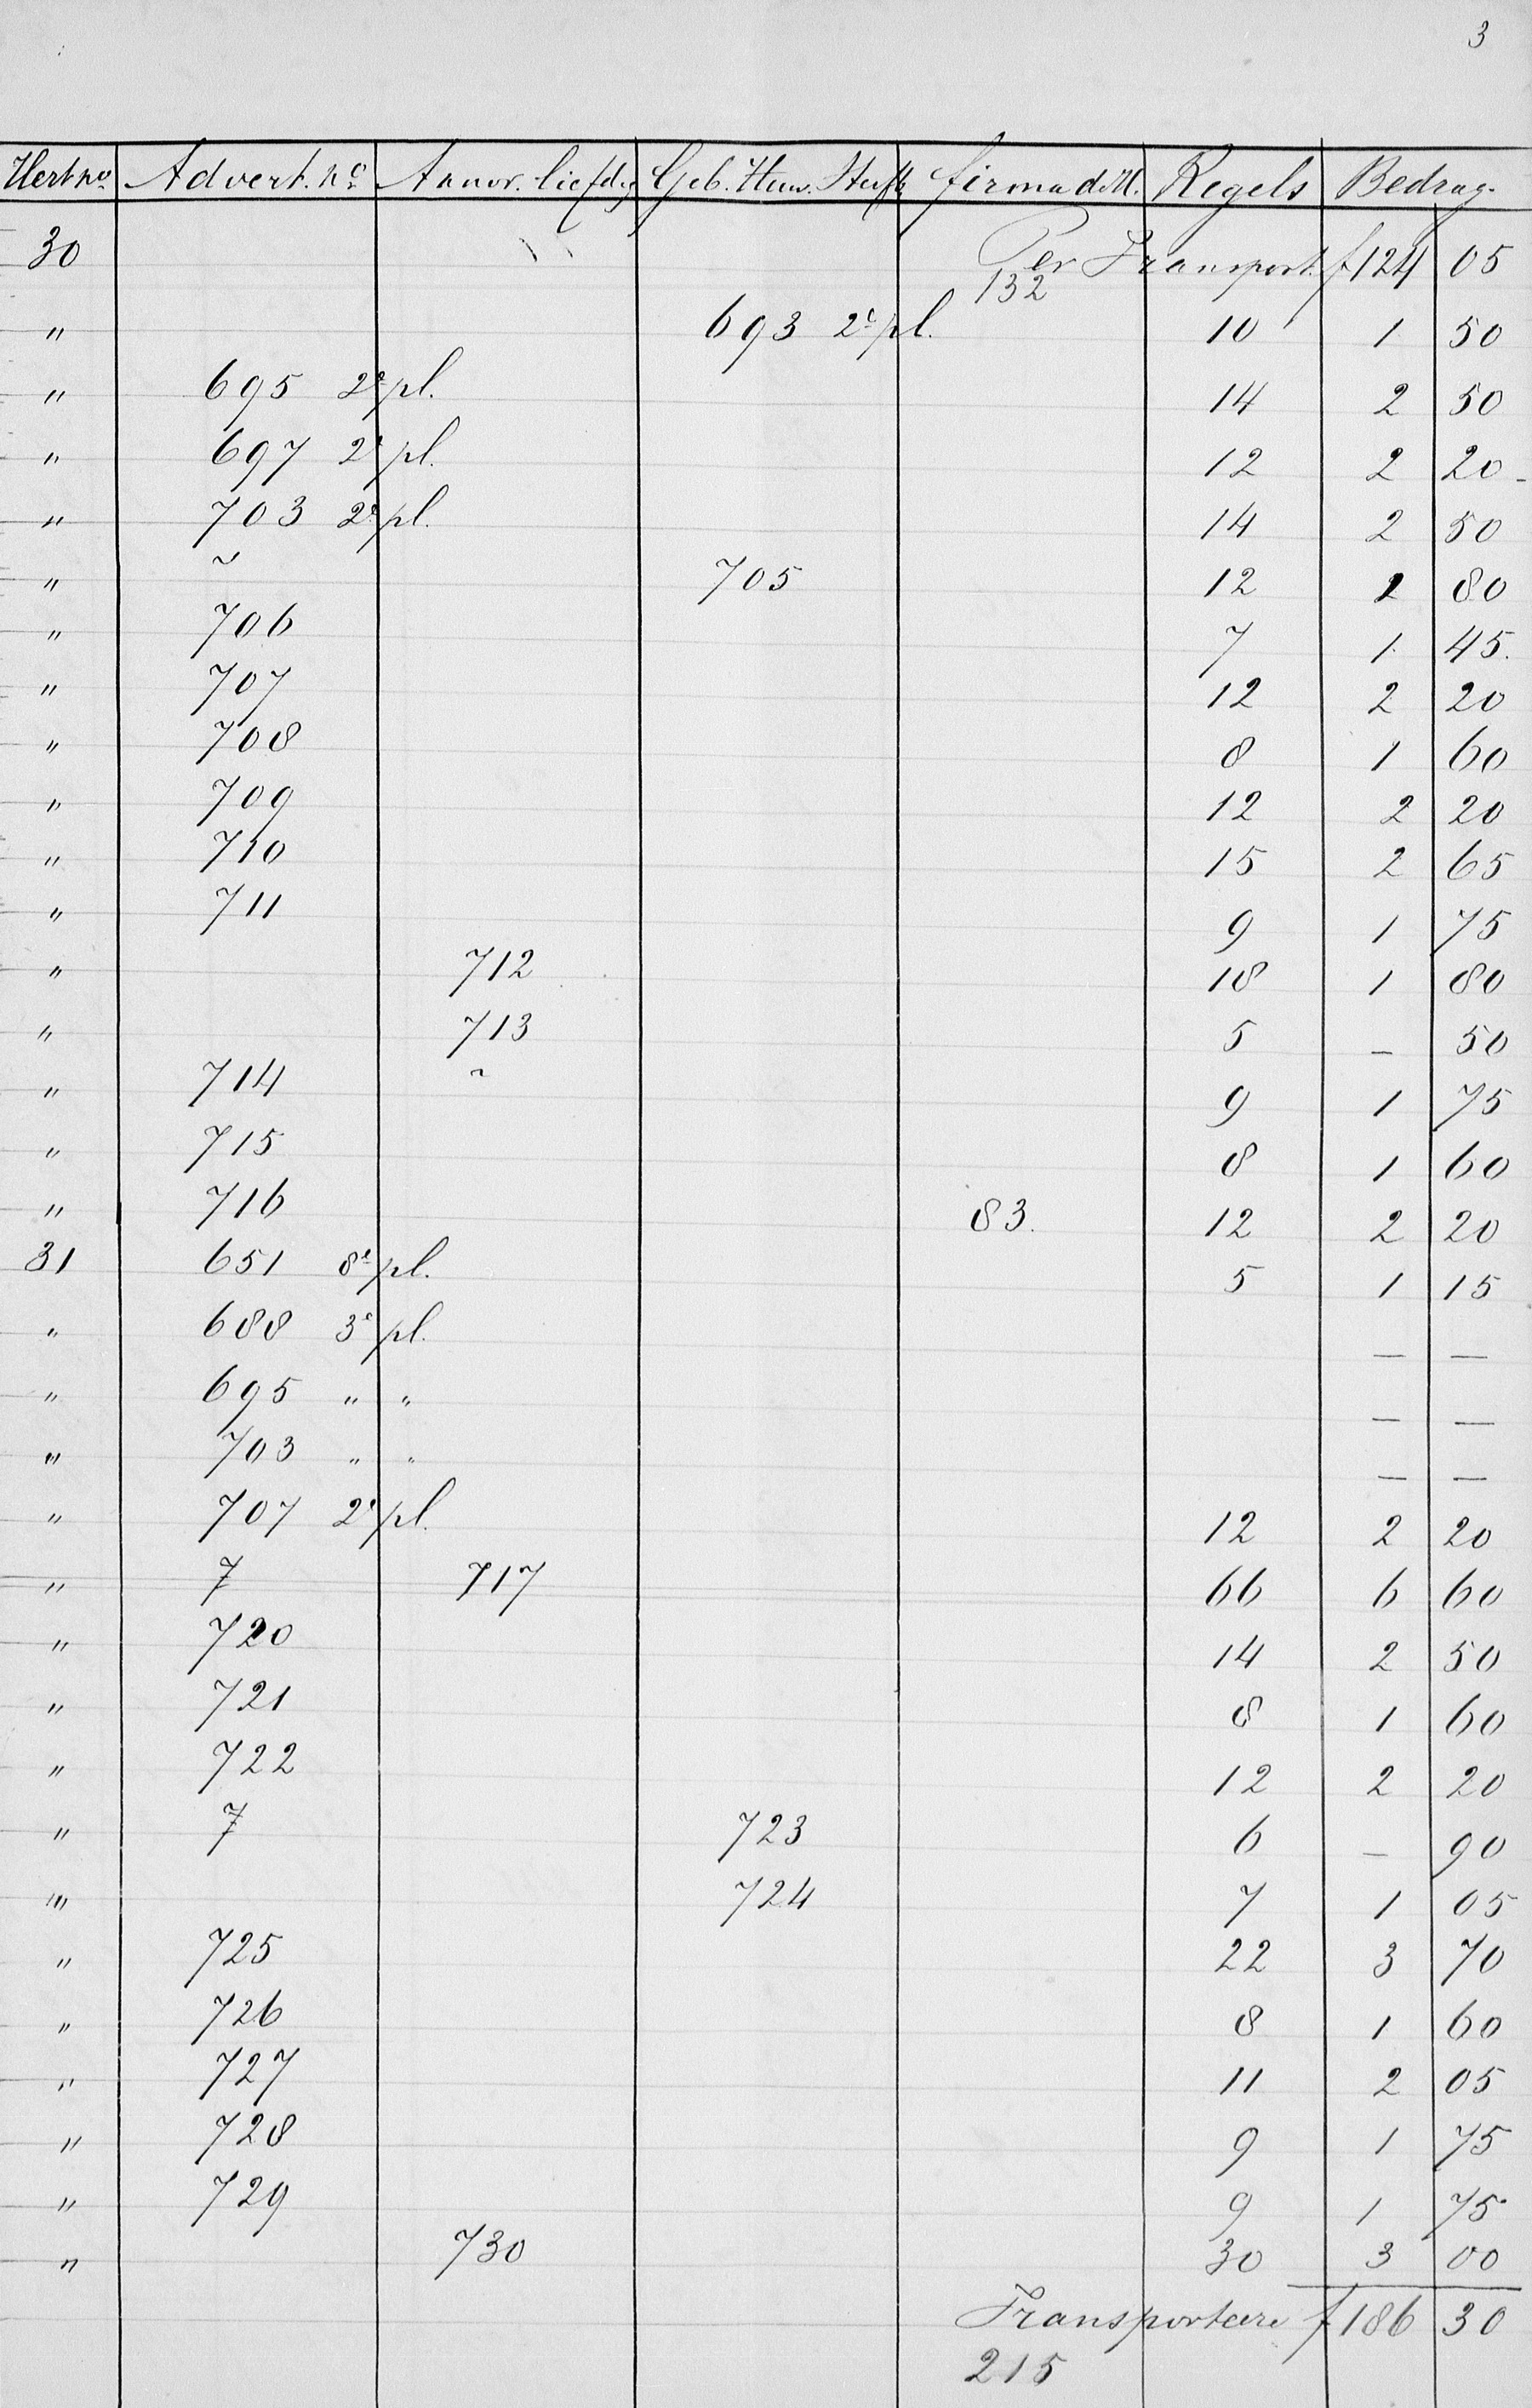 3
Advert. no. Regels Bedrag.
30 Per Transport f 124 05
132
" 693 2e pl. 10 1 50
" 695 2e pl. 14 2 50
" 697 2e pl. 12 2 20
" 703 2e pl. 14 2 50
" 705 12 1 80
" 706 7 1 45.
" 707 12 2 20
" 708 8 1 60
" 709 12 2 20
" 710 15 2 65
" 711 9 1 75
" 712 18 1 80
" 713 5 – 50
" 714 9 1 75
" 715 8 1 60
" 716 83. 12 2 20
31 651 8e pl. 5 1 15
" 688 3e pl. — —
" 695 " " — —
" 703 " " — —
" 707 2e pl. 12 2 20
" 7 717 66 6 60
" 720 14 2 50
" 721 8 1 60
" 722 12 2 20
" 7 723 6 – 90
" 724 7 1 05
" 725 22 3 70
" 726 8 1 60
" 727 11 2 05
" 728 9 1 75
" 729 9 1 75
" 730 30 3 00
Transportere f 186 30
215